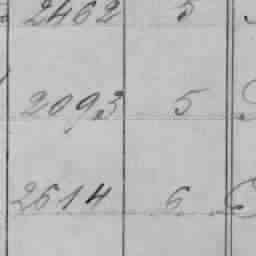 2462 5
2093 5
2614 6